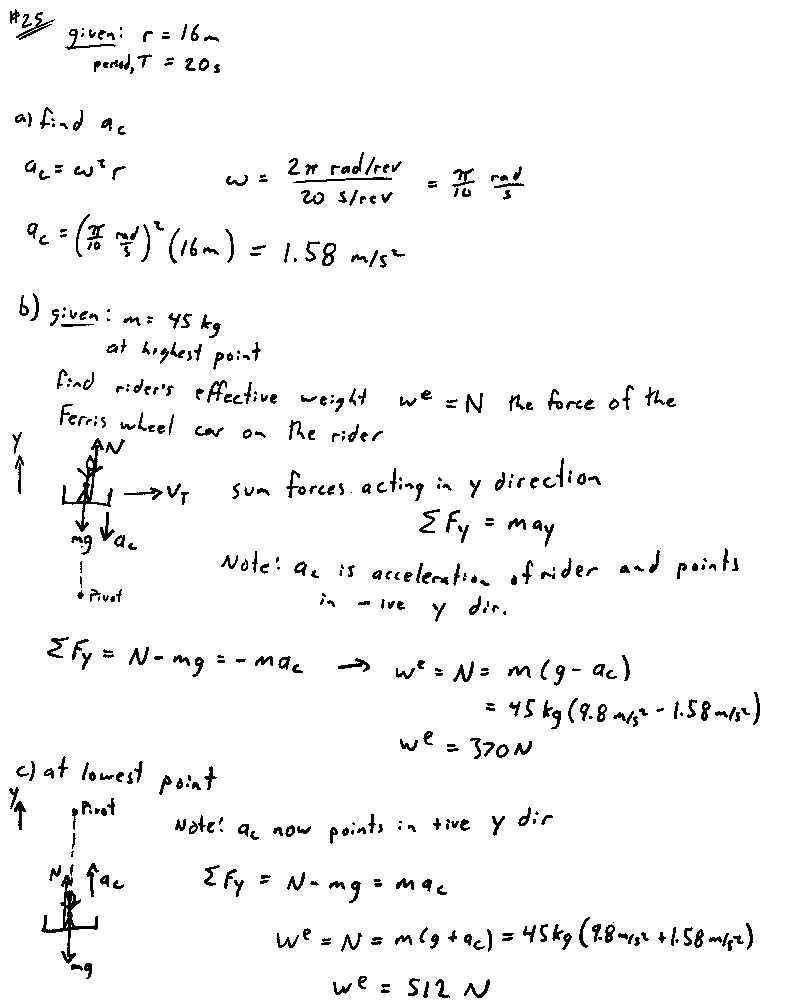 #25
given: r = 16m
period, T = 20s
a) find a_c
a_c = ω²r    ω = (2π rad/rev)/(20 s/rev) = π/10 rad/s
a_c = (π/10 rad/s)² (16m) = 1.58 m/s²
b) given: m = 45 kg
at highest point
find rider's effective weight w^e = N the force of the
Ferris wheel car on the rider
y
N
→ V_T    sum forces acting in y direction
ΣFy = may
mg    a_c
Note! a_c is acceleration of rider and points
in -ive y dir.
Pivot
ΣFy = N - mg = -ma_c → w^e = N = m(g - a_c)
= 45 kg (9.8 m/s² - 1.58 m/s²)
w^e = 370 N
c) at lowest point
y
Pivot
Note! a_c now points in +ive y dir
N    a_c
ΣFy = N - mg = ma_c
w^e = N = m(g + a_c) = 45kg (9.8 m/s² + 1.58 m/s²)
mg
w^e = 512 N